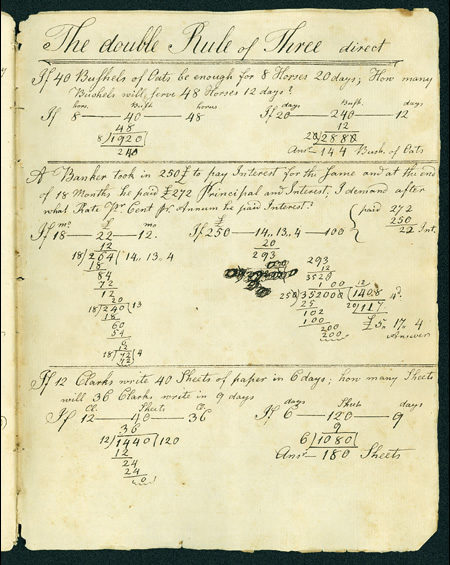 The double Rule of Three direct
If 40 Bushels of Oats be enough for 8 Horses 20 days; How many
Bushels will serve 48 Horses 12 days?
hors. Bush. horses
If 8 — 40 — 48
48
8)1920
240
days Bush. days
If 20 — 240 — 12
12
20)2880
Ans.r — 144 Bush. of Oats
A Banker took in 250£ to pay Interest for the same and at the end
of 18 Months he paid £272 Principal and Interest, I demand after
what Rate Pr. Cent Pr. Annum he paid Interest?
mo. £ mo
If 18 — 22 — 12.
12
18)264(14,,13,,4
18
84
72
12
20
18)240(13
18
60
54
6
12
18)72(4
72
£
If 250 — 14,,13,,4 — 100
20
293
paid 272
250
22 Int.
293
12
3520
100
250)352000(1408
25
102
100
200
200
12
20)117 4d.
£5,, 17,, 4
Answer
If 12 Clarks write 40 Sheets of paper in 6 days; how many Sheets
will 36 Clarks write in 9 days
Cl. Sheets Cl.
If 12 — 40 — 36
36
12)1440(120
12
24
24
0
days Sheets days
If 6 — 120 — 9
9
6)1080
Ans.r — 180 Sheets